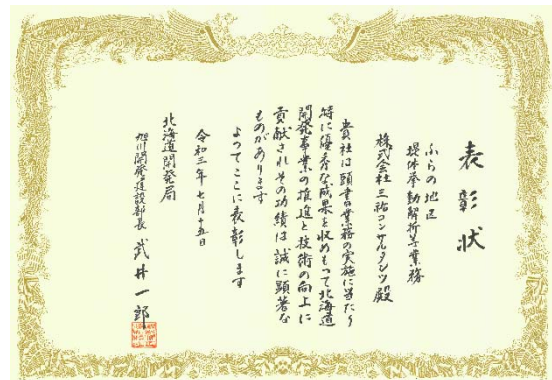 表彰状
ふらの地区
堤体挙動解析等業務
株式会社三祐コンサルタンツ殿
貴社は頭書の業務の実施に当たり
特に優秀な成果を収めもって北海道
開発事業の推進と技術の向上に
貢献されその功績は誠に顕著な
ものがあります
よってここに表彰します
令和三年七月十五日
北海道開発局
旭川開発建設部長 武井一郎